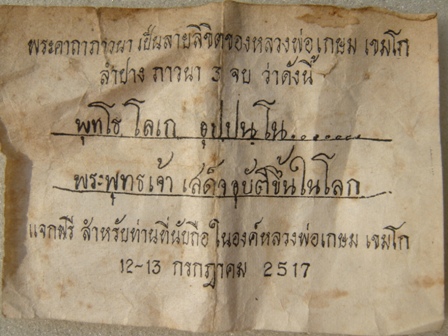 พระคาถาภาวนา เป็นลายลิขิตของหลวงพ่อเกษม เขมโก
ลำปาง ภาวนา 3 จบ ว่าดังนี้
พุทโธ โลเก อุปฺปนฺโน.......
พระพุทธเจ้า เสด็จอุบัติขึ้นในโลก
แจกฟรี สำหรับท่านที่นับถือในองค์หลวงพ่อเกษม เขมโก
12-13 กรกฎาคม 2517